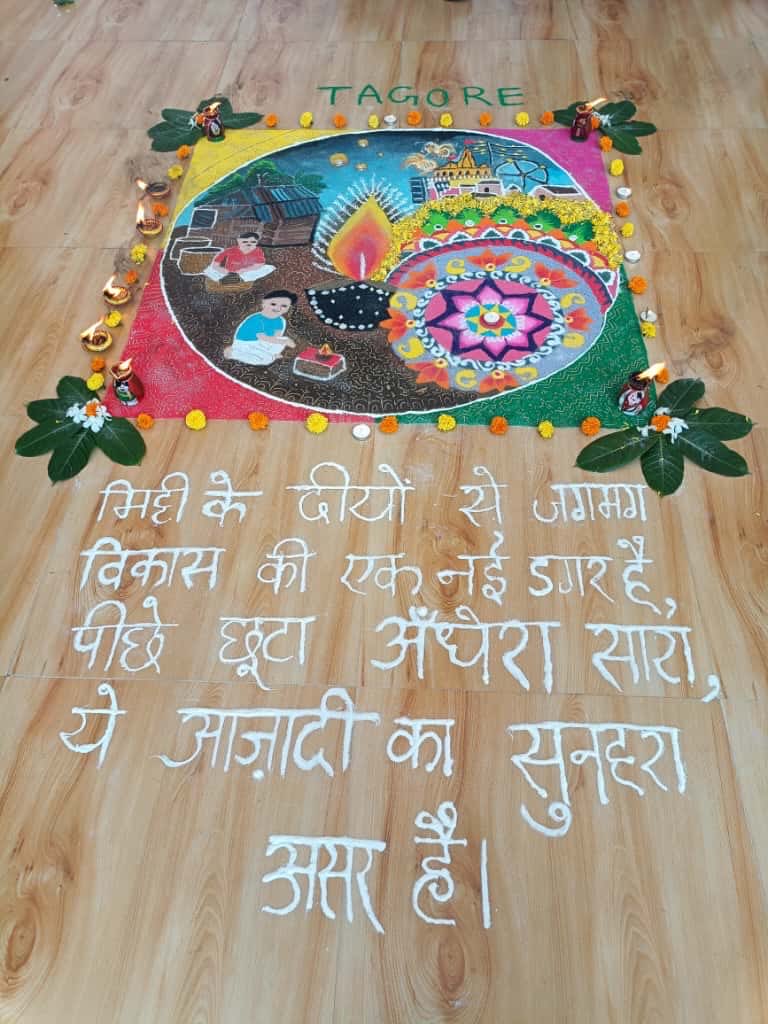 TAGORE
मिट्टी के दीयों से जगमग
विकास की एक नई डगर है,
पीछे छूटा अँधेरा सारा,
ये आज़ादी का सुनहरा
असर है।